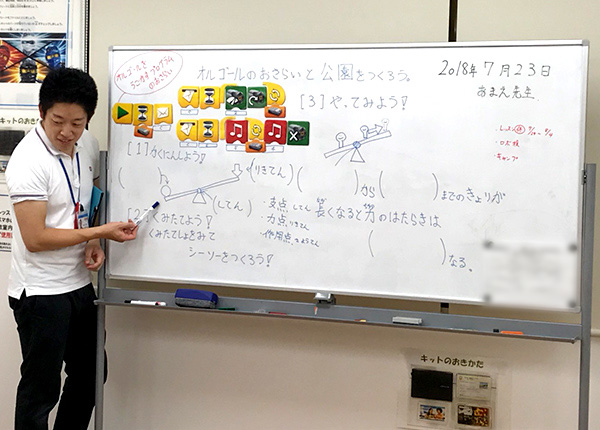 オルゴールを
うごかすプログラム
のおさらい
オルゴールのおさらいと公園をつくろう。
2018年7月23日
あまえ先生
[3]やってみよう!
[1]かくにんしよう!
( )(りきてん)
(してん)
( )から( )までのきょりが
長くなると力のはたらきは
( )なる。
・支点 してん
・力点 りきてん
・作用点 さようてん
[2]くみたてよう!
くみたてしょをみて
シーソーをつくろう!
・ロボ検
・キャンプ
キットのおきかた
キットのおきかた